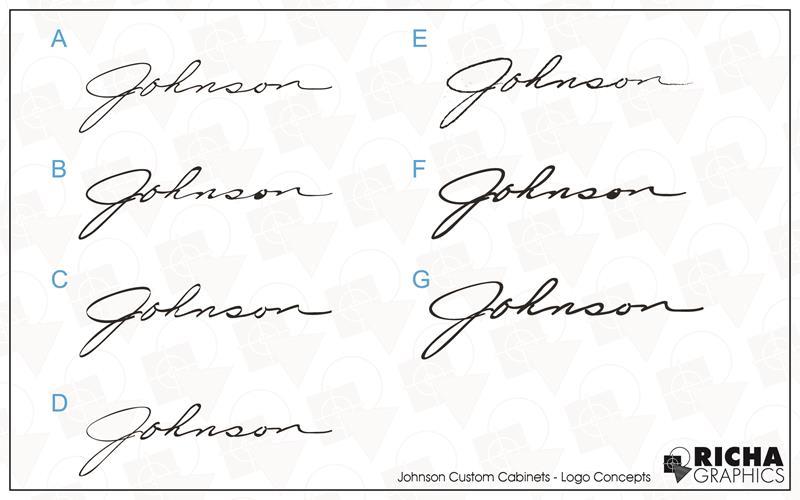 A
Johnson
B
Johnson
C
Johnson
D
Johnson
E
Johnson
F
Johnson
G
Johnson
Johnson Custom Cabinets - Logo Concepts
RICHA
GRAPHICS